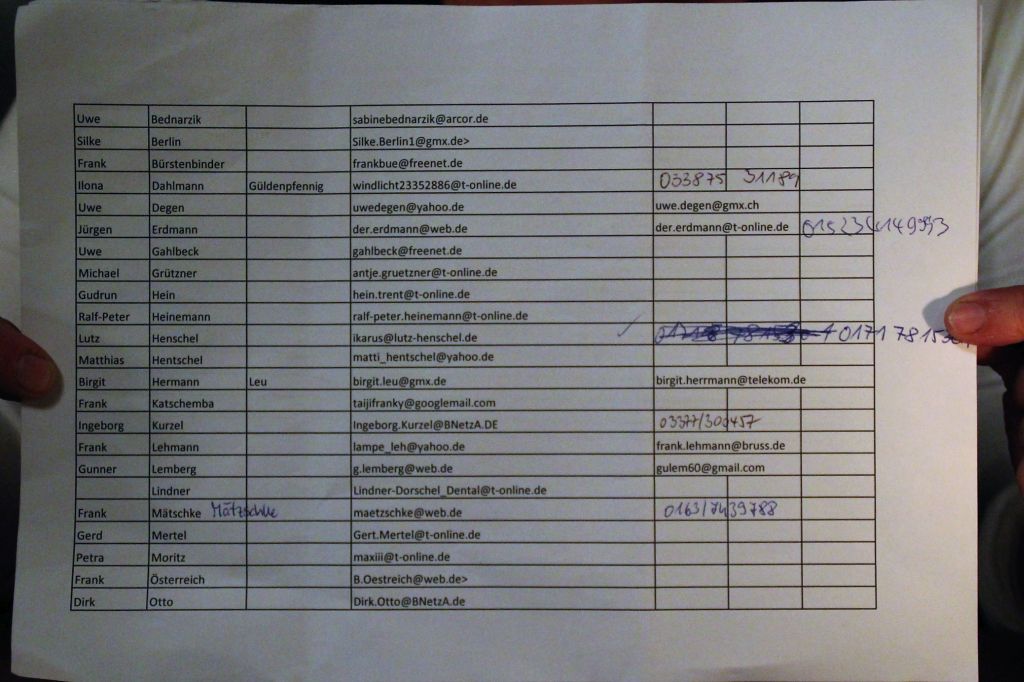 Uwe Bednarzik sabinebednarzik@arcor.de
Silke Berlin Silke.Berlin1@gmx.de>
Frank Bürstenbinder frankbue@freenet.de
Ilona Dahlmann Güldenpfennig windlicht23352886@t-online.de 033875 31189
Uwe Degen uwedegen@yahoo.de uwe.degen@gmx.ch
Jürgen Erdmann der.erdmann@web.de der.erdmann@t-online.de
Uwe Gahlbeck gahlbeck@freenet.de
Michael Grützner antje.gruetzner@t-online.de
Gudrun Hein hein.trent@t-online.de
Ralf-Peter Heinemann ralf-peter.heinemann@t-online.de
Lutz Henschel ikarus@lutz-henschel.de 0171
Matthias Hentschel matti_hentschel@yahoo.de
Birgit Hermann Leu birgit.leu@gmx.de birgit.herrmann@telekom.de
Frank Katschemba taijifranky@googlemail.com
Ingeborg Kurzel Ingeborg.Kurzel@BNetzA.DE 03377/300457
Frank Lehmann lampe_leh@yahoo.de frank.lehmann@bruss.de
Gunner Lemberg g.lemberg@web.de gulem60@gmail.com
Lindner Lindner-Dorschel_Dental@t-online.de
Frank Mätschke Mätzschke maetzschke@web.de 0163/7439788
Gerd Mertel Gert.Mertel@t-online.de
Petra Moritz maxiii@t-online.de
Frank Österreich B.Oestreich@web.de>
Dirk Otto Dirk.Otto@BNetzA.de